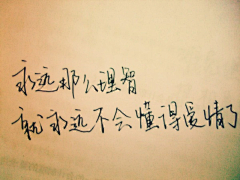 永远那么理智
就永远不会懂得爱情了